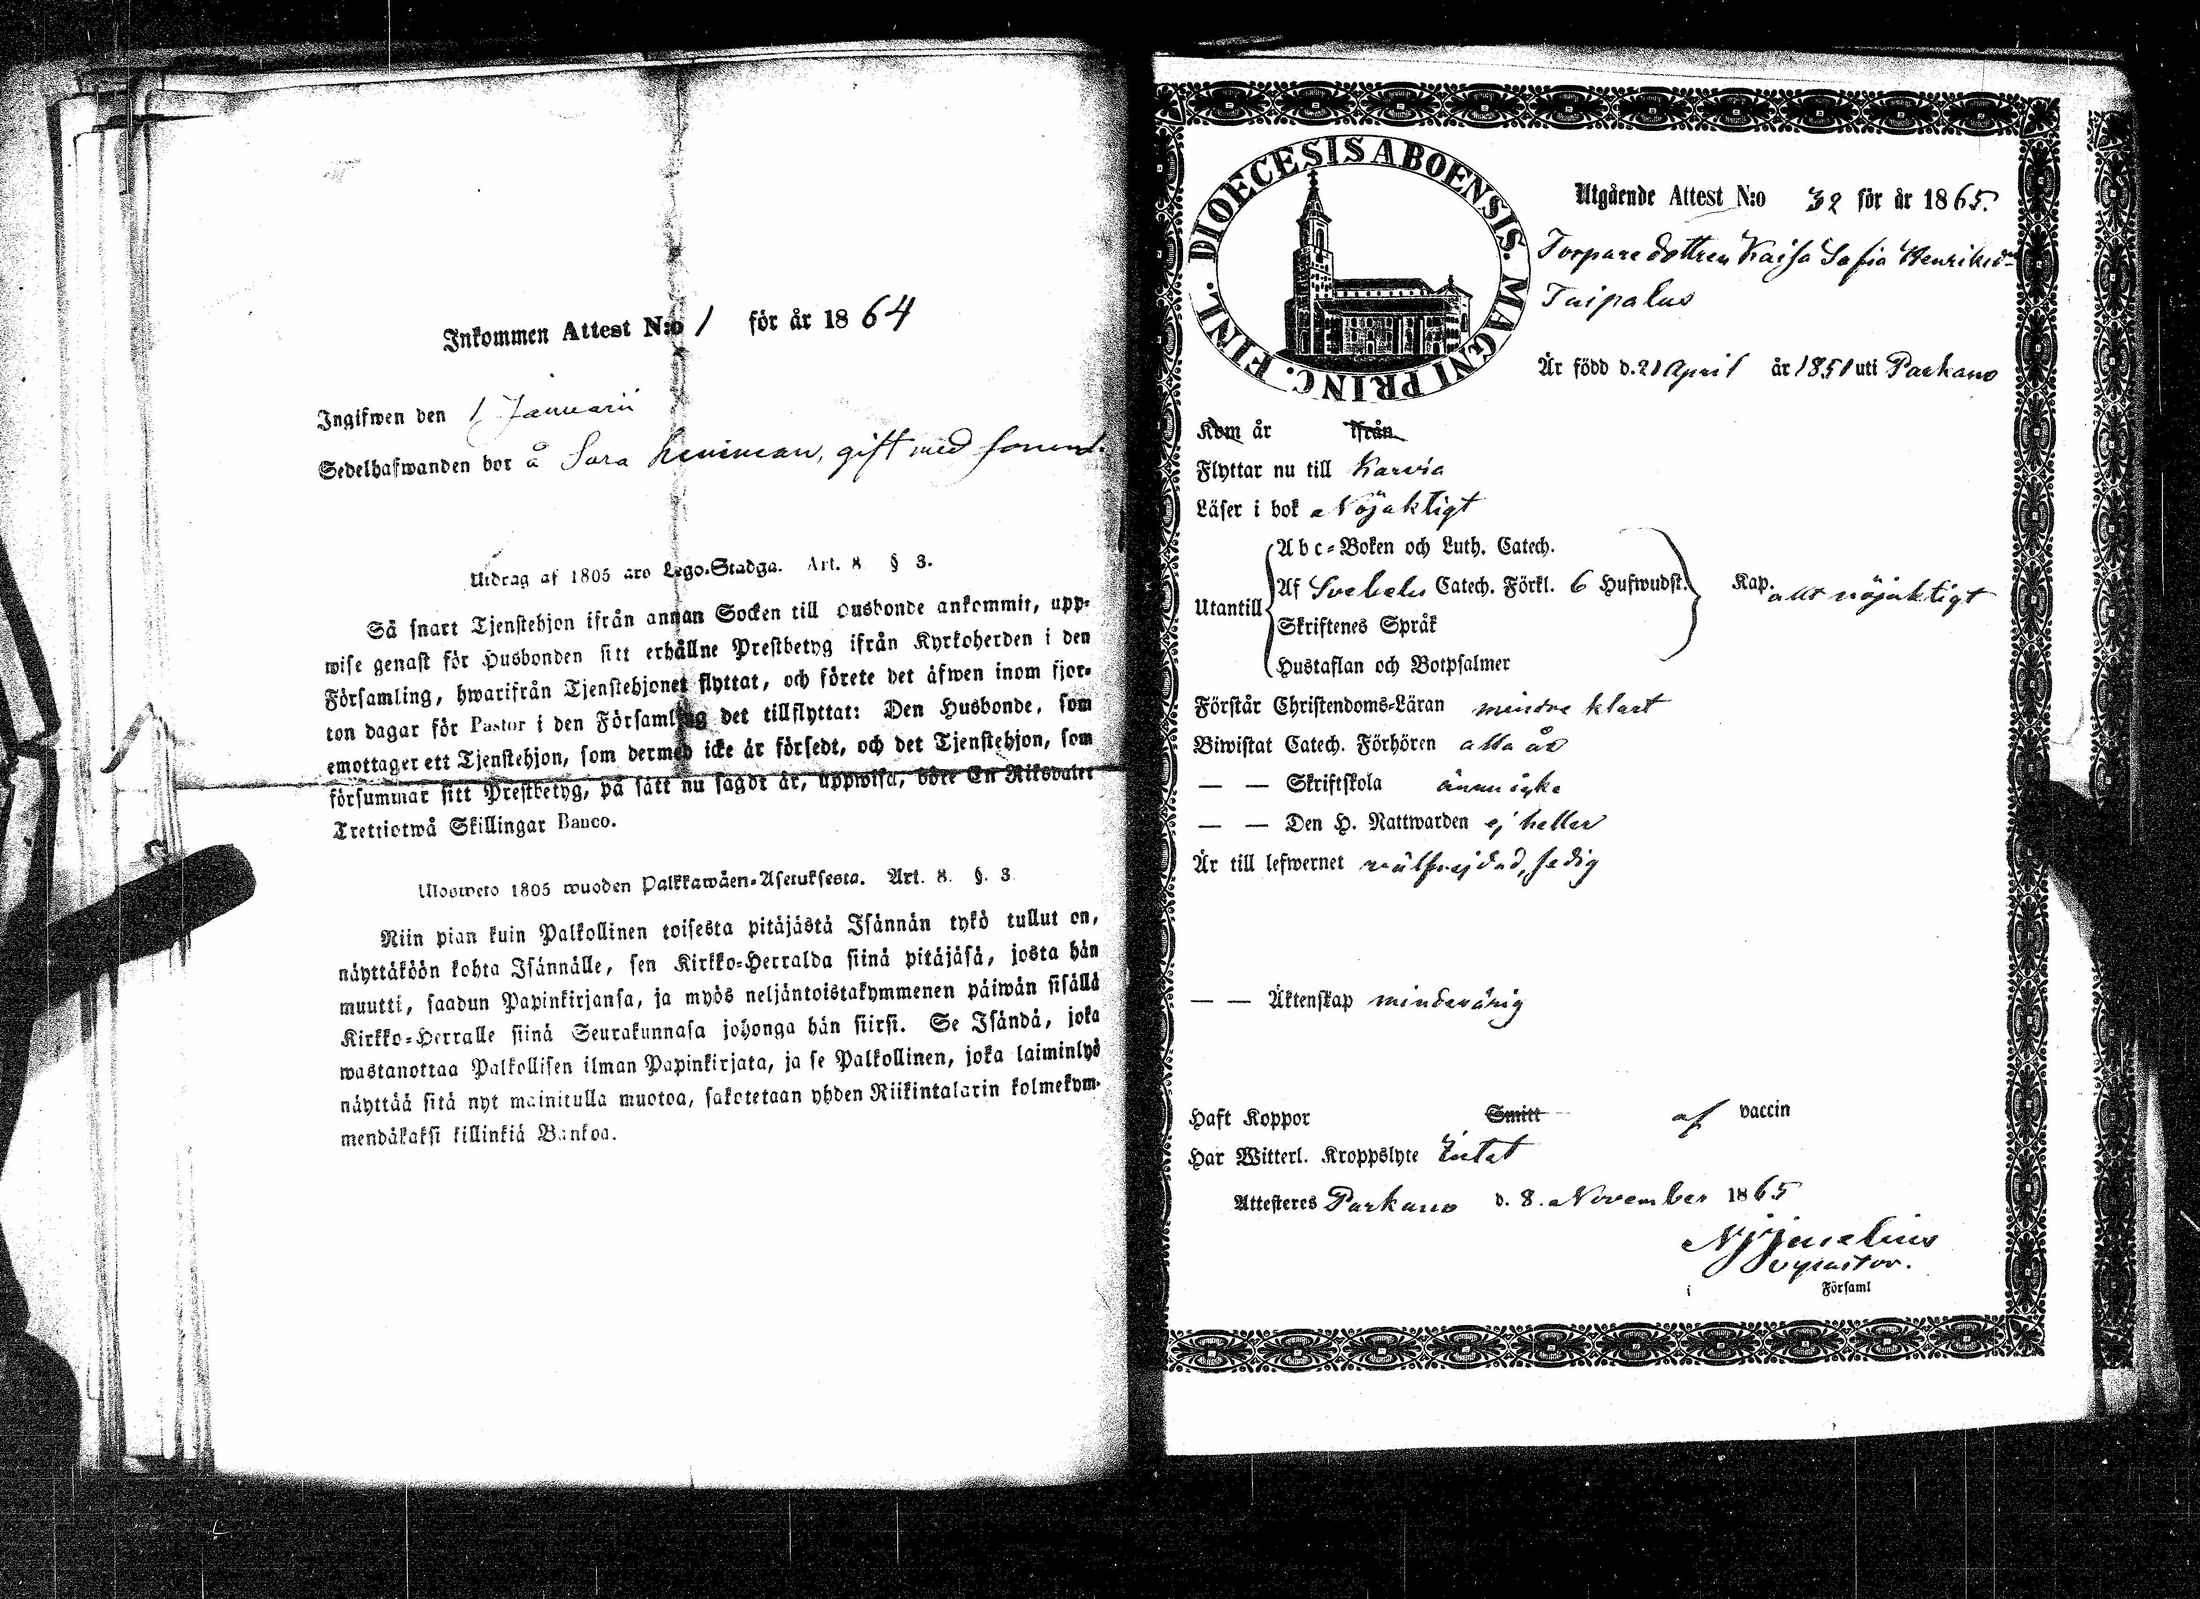 Inkommen Attest N:o 1 för år 1864
Ingifwen den 1 Januarii
Sedelhafwanden bor å Sara gift med
Utdrag af 1805 års Lego-Stadga. Art. 8 § 3.
Så snart Tjenstehjon ifrån annan Socken till Husbonde ankommit, upp-
wise genast för Husbonden sitt erhållne Prestbetyg ifrån Kyrkoherden i den
Församling, hwarifrån Tjenstehjonet flyttat, och förete det äfwen inom fjor-
ton dagar för Pastor i den Församling det tillflyttat: Den Husbonde, som
emottager ett Tjenstehjon, som dermed icke är försedt, och det Tjenstehjon, som
försummar sitt Prestbetyg, på sätt nu sagdt är, uppwisa, böte En Riksdaler
Trettiotwå Skillingar Banco.
Ulosweto 1805 wuoden Palkkawäen-Asetuksesta. Art. 8. §. 3
Niin pian kuin Palkollinen toisesta pitäjästä Isännän tykö tullut on,
näyttäköön kohta Isännälle, sen Kirkko-Herralda siinä pitäjäsä, josta hän
muutti, saadun Papinkirjansa, ja myös neljäntoistakymmenen päiwän sisällä
Kirkko-Herralle siinä Seurakunnasa johonga hän siirsi. Se Isändä, joka
wastanottaa Palkollisen ilman Papinkirjata, ja se Palkollinen, joka laiminlyö
näyttää sitä nyt mainitulla muotoa, sakotetaan yhden Riikintalarin kolmekym-
mendäkaksi killinkiä Bankoa.
DIOECESIS ABOENSIS. MAGNI PRINC. FINL.
Utgående Attest N:o 32 för år 1865.
Torparedottren Kaisa Sofia Henriksdr
Taipalus
Är född d. 21 April år 1851 uti Parkano
Kom år ifrån
Flyttar nu till Karvia
Läser i bok Nöjaktigt
Abc-Boken och Luth. Catech.
Utantill Af Svebelii Catech. Förkl. 6 Hufwudst. Kap. allt nöjaktigt
Skriftenes Språk
Hustaflan och Botpsalmer
Förstår Christendoms-Läran mindre klart
Biwistat Catech. Förhören alla år
— — Skriftskola ännu icke
— — Den H. Nattwarden ej heller
Är till lefwernet välfrejdad, sedig
— — Äktenskap minderårig
Haft Koppor Smitt af vaccin
Har Witterl. Kroppslyte Intet
Attesteres Parkano d. 8. November 1865
vpastor.
i Församl